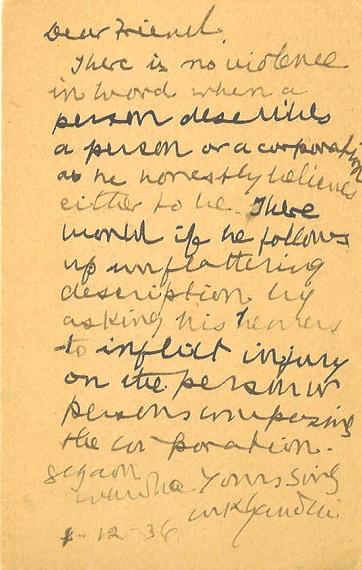 Dear Friend,
There is no violence
in word when a
person describes
a person or a corporation
as he honestly believes
either to be. There
would if he follows
up unflattering
description by
asking his hearers
to inflict injury
on the person or
persons composing
the corporation.
Segaon
Wardha Yours sincy
MKGandhi
-12-36